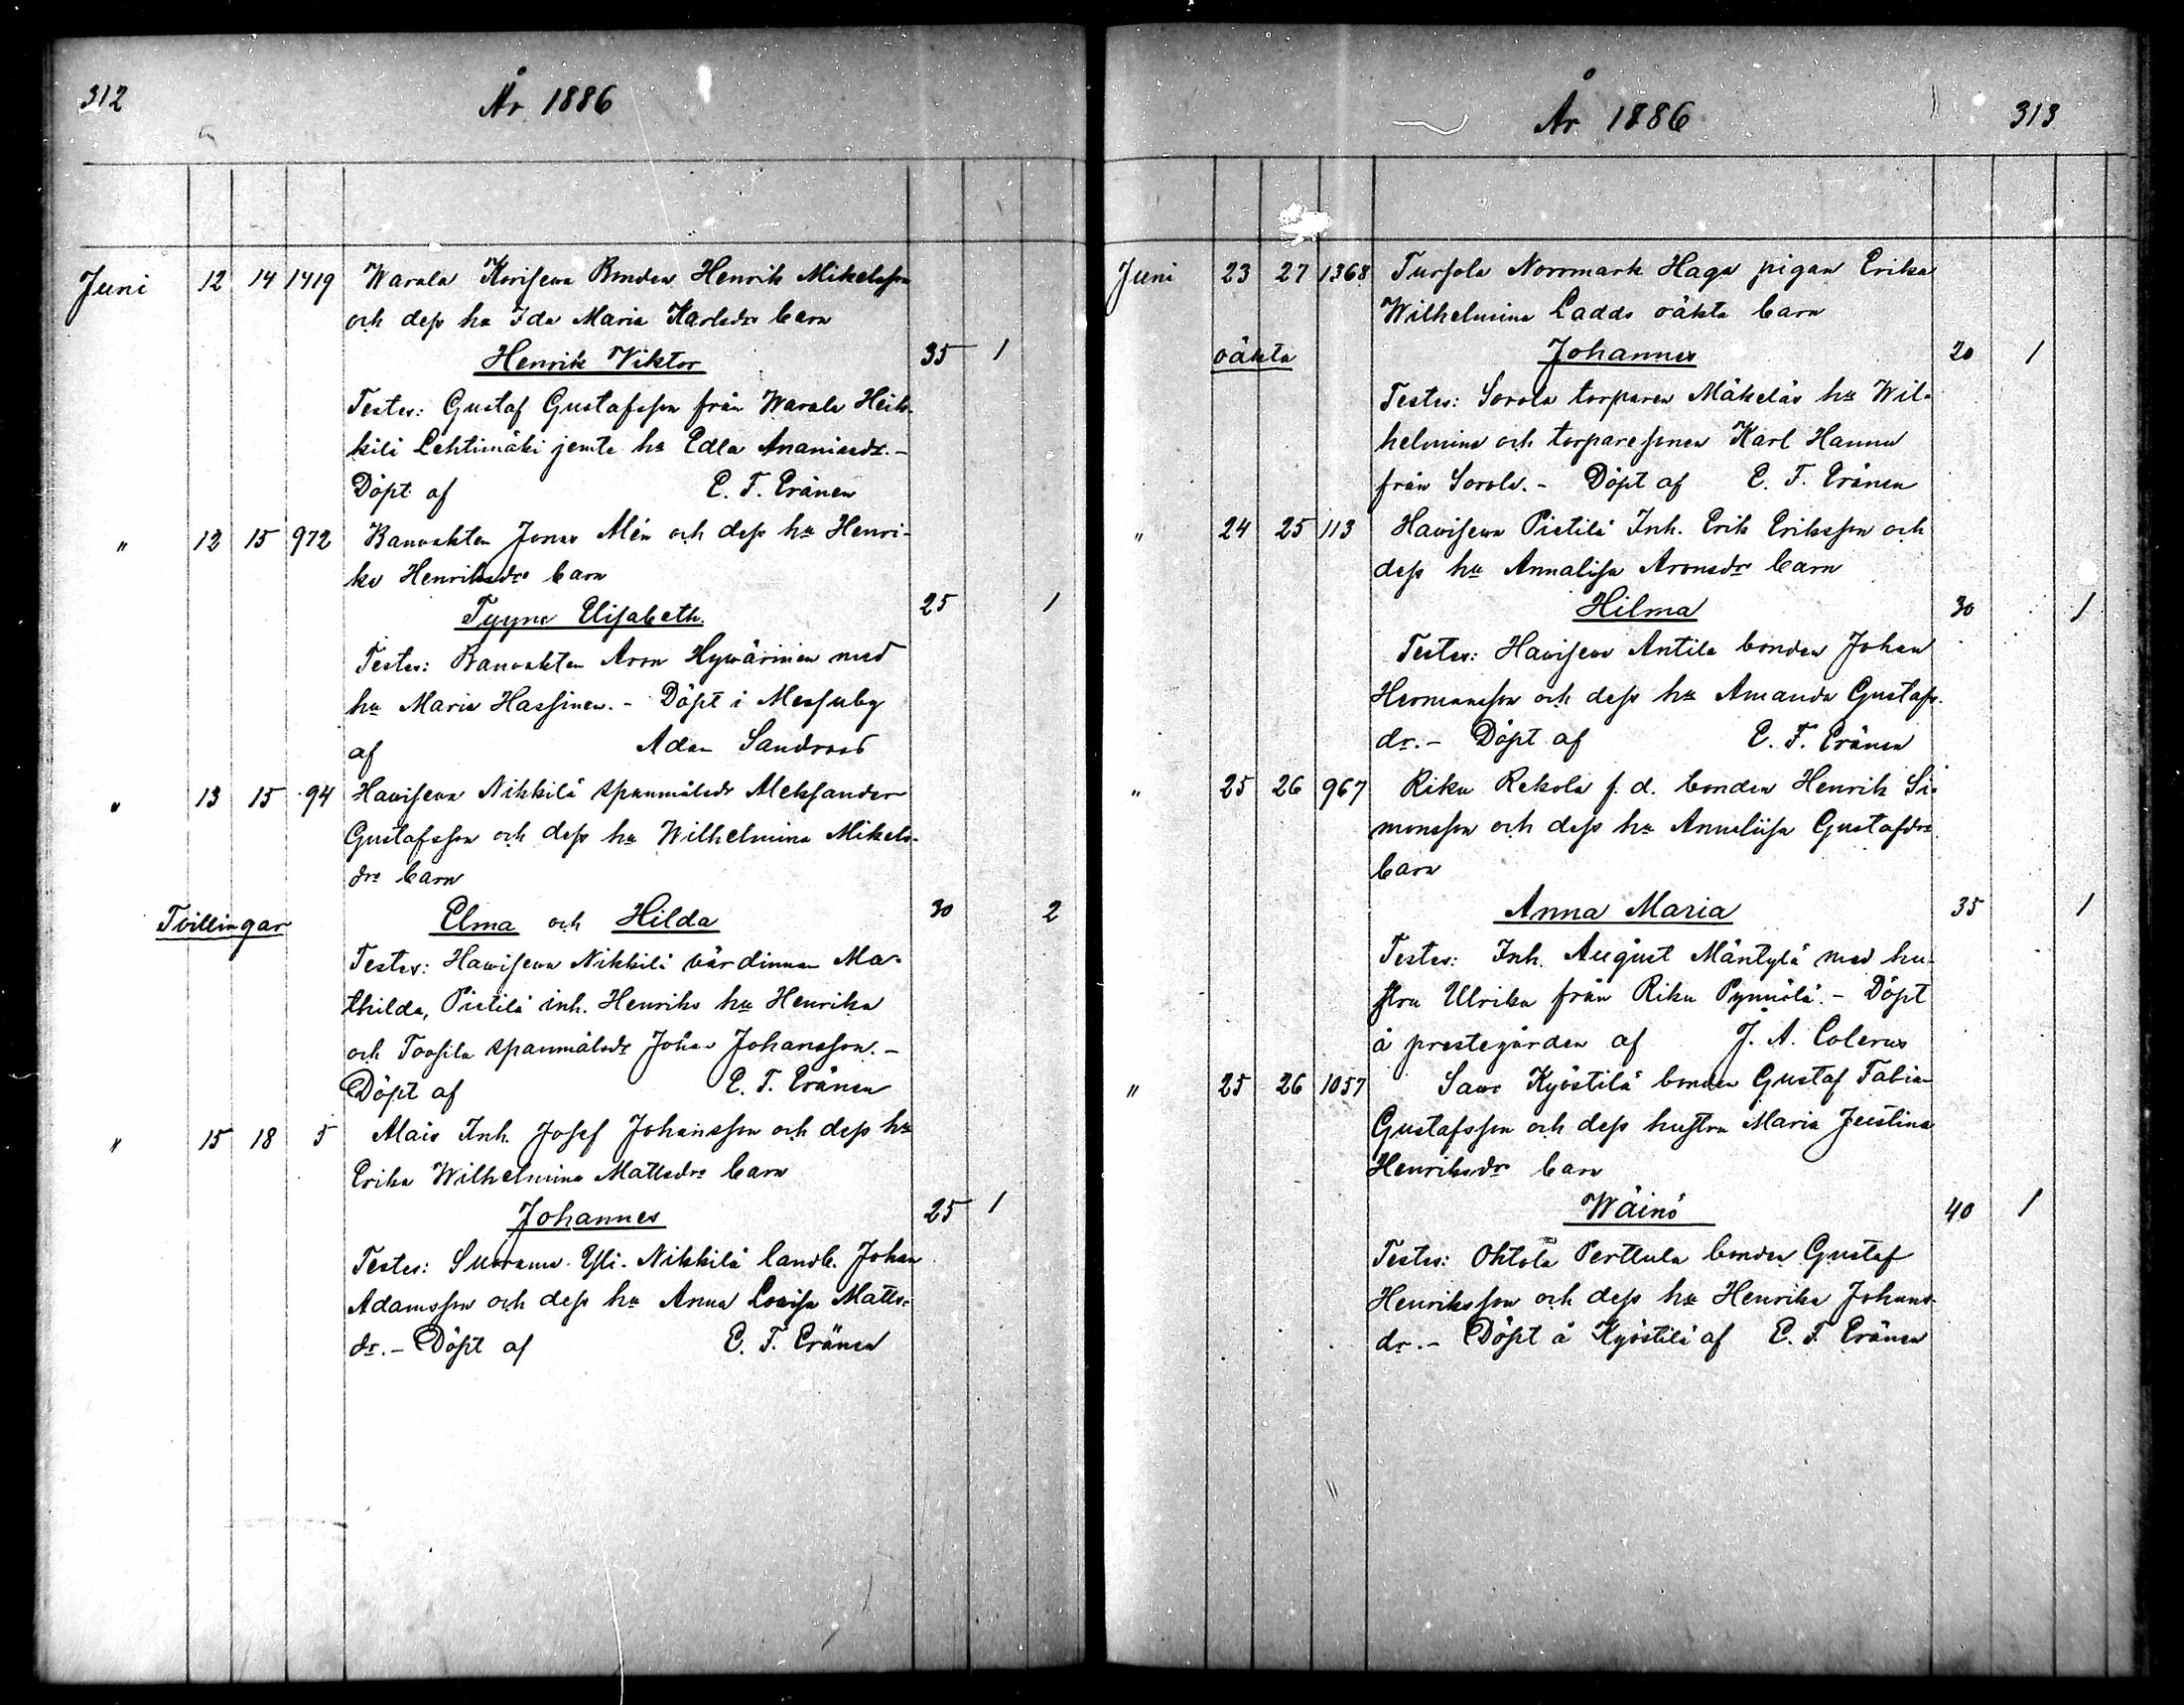 312
År 1886
Juni 12 14 1419 Warala Korisewa Bonden Henrik Mikelsson
och dess hu Ida Maria Karlsdr barn
Henrik Viktor 35 1
Testes: Gustaf Gustafsson från Warala Heik-
kilä Lehtimäki jemte hu Edla Ananiasdr. -
Döpt af E. F. Eränen
" 12 15 972 Banvakten Jonas Alén och dess hu Henri-
ka Henriksdr barn
Tyyne Elisabeth. 25 1
Testes: Banvakten Aron Hywärinen med
hu Maria Hassinen. - Döpt i Messuby
af Adam Sandroos
" 13 15 94 Hawisewa Nikkilä spanmålsdr Aleksander
Gustafsson och dess hu Wilhelmina Mikels-
dr barn
Tvillingar Elma och Hilda 30 2
Testes: Hawisewa Nikkilä värdinnan Ma-
thilda, Pietilä inh. Henriks hu Henrika
och spanmålsdr Johan Johansson. -
Döpt af E. F. Eränen
" 15 18 5 Alais Inh. Josef Johansson och dess hu
Erika Wilhelmina Mattsdr barn
Johannes 25 1
Testes: Suorama Yli-Nikkilä landb. Johan
Adamsson och dess hu Anna Lovisa Matts-
dr. - Döpt af E. F. Eränen
År 1886
313
Juni 23 27 1368 Tursola Norrmark Haga pigan Erika
Wilhelmina Ladds oäkta barn
oäkta Johannes 20 1
Testes: Sorola torparen Mäkeläs hu Wil-
helmina och torparesonen Karl Hannu
från Sorola. - Döpt af E. F. Eränen
" 24 25 113 Hawisewa Pietilä Inh. Erik Eriksson och
dess hu Annalisa Aronsdr barn
Hilma 30 1
Testes: Hawisewa Antila bonden Johan
Hermansson och dess hu Amanda Gustafs-
dr. - Döpt af E. F. Eränen
" 25 26 967 Riku Rekola f. d. bonden Henrik Si-
monsson och dess hu Annaliisa Gustafsdr
barn
Anna Maria 35 1
Testes: Inh. August Mäntylä med hu-
stru Ulrika från Riku Pynnölä. - Döpt
å prestegården af J. A. Colerus
" 25 26 1057 Sawo Kyöstilä bonden Gustaf Fabian
Gustafsson och dess hustru Maria Justina
Henriksdr barn
Wäinö 40 1
Testes: Ohtola Perttula bonden Gustaf
Henriksson och dess hu Henrika Johans-
dr. - Döpt å Kyöstilä af E. F. Eränen